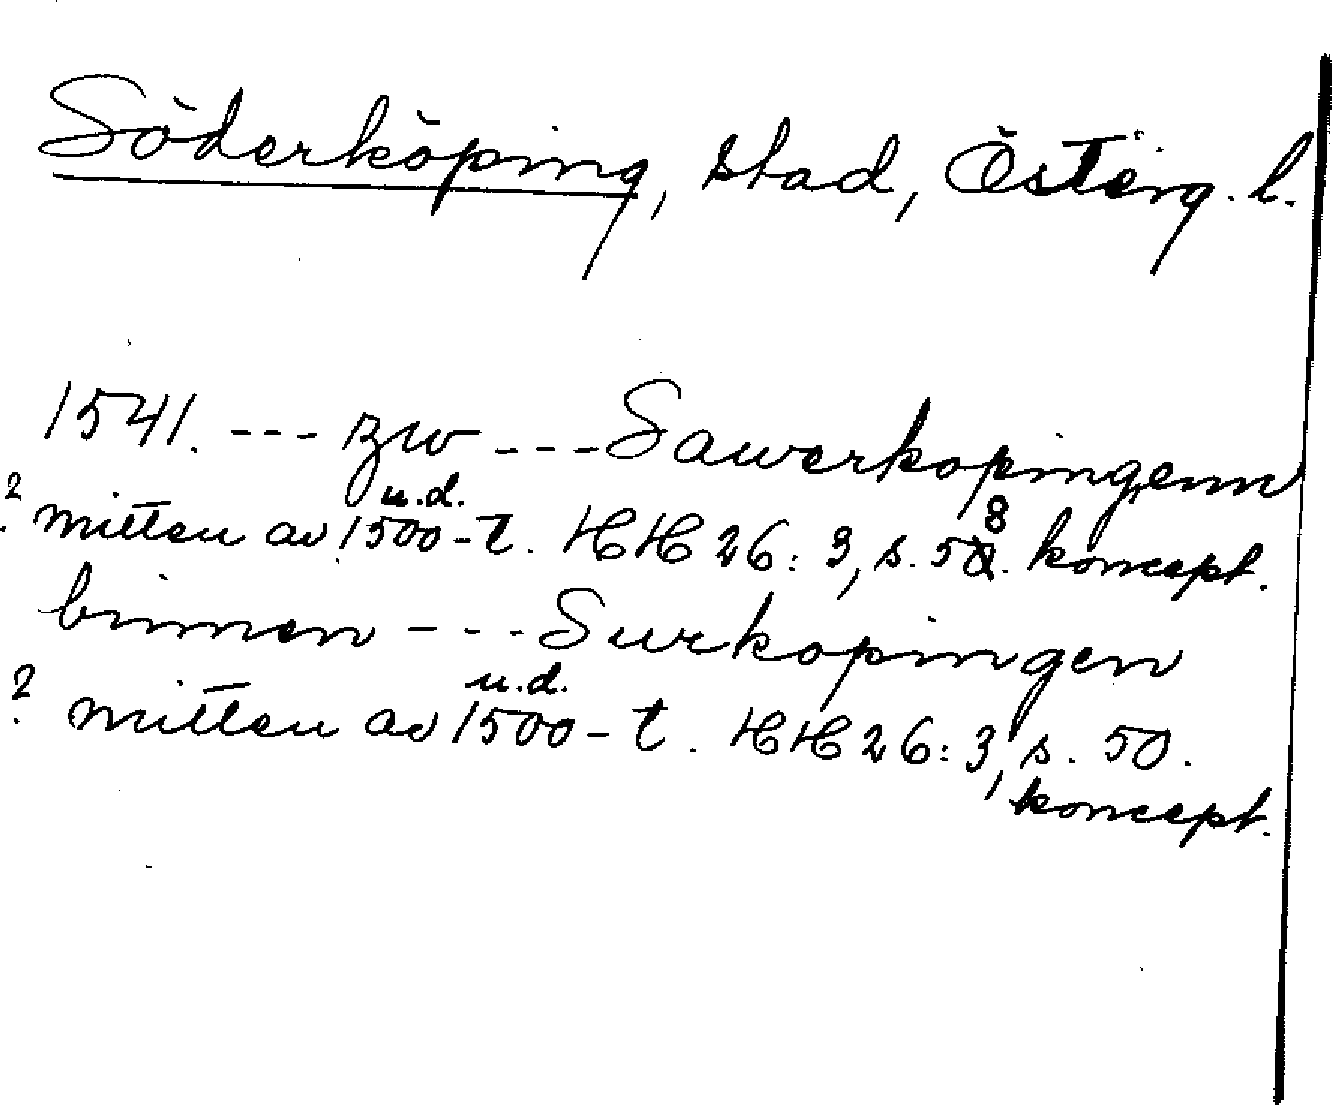 Söderköping, stad, Österg. l.
1541. --- zw --- Sawerkopingenn
u.d.
? mitten av 1500-t. HH 26:3, s. 58. koncept.
binnen --- Surkopingen
u.d.
? mitten av 1500-t. HH 26:3, s. 50.
koncept.